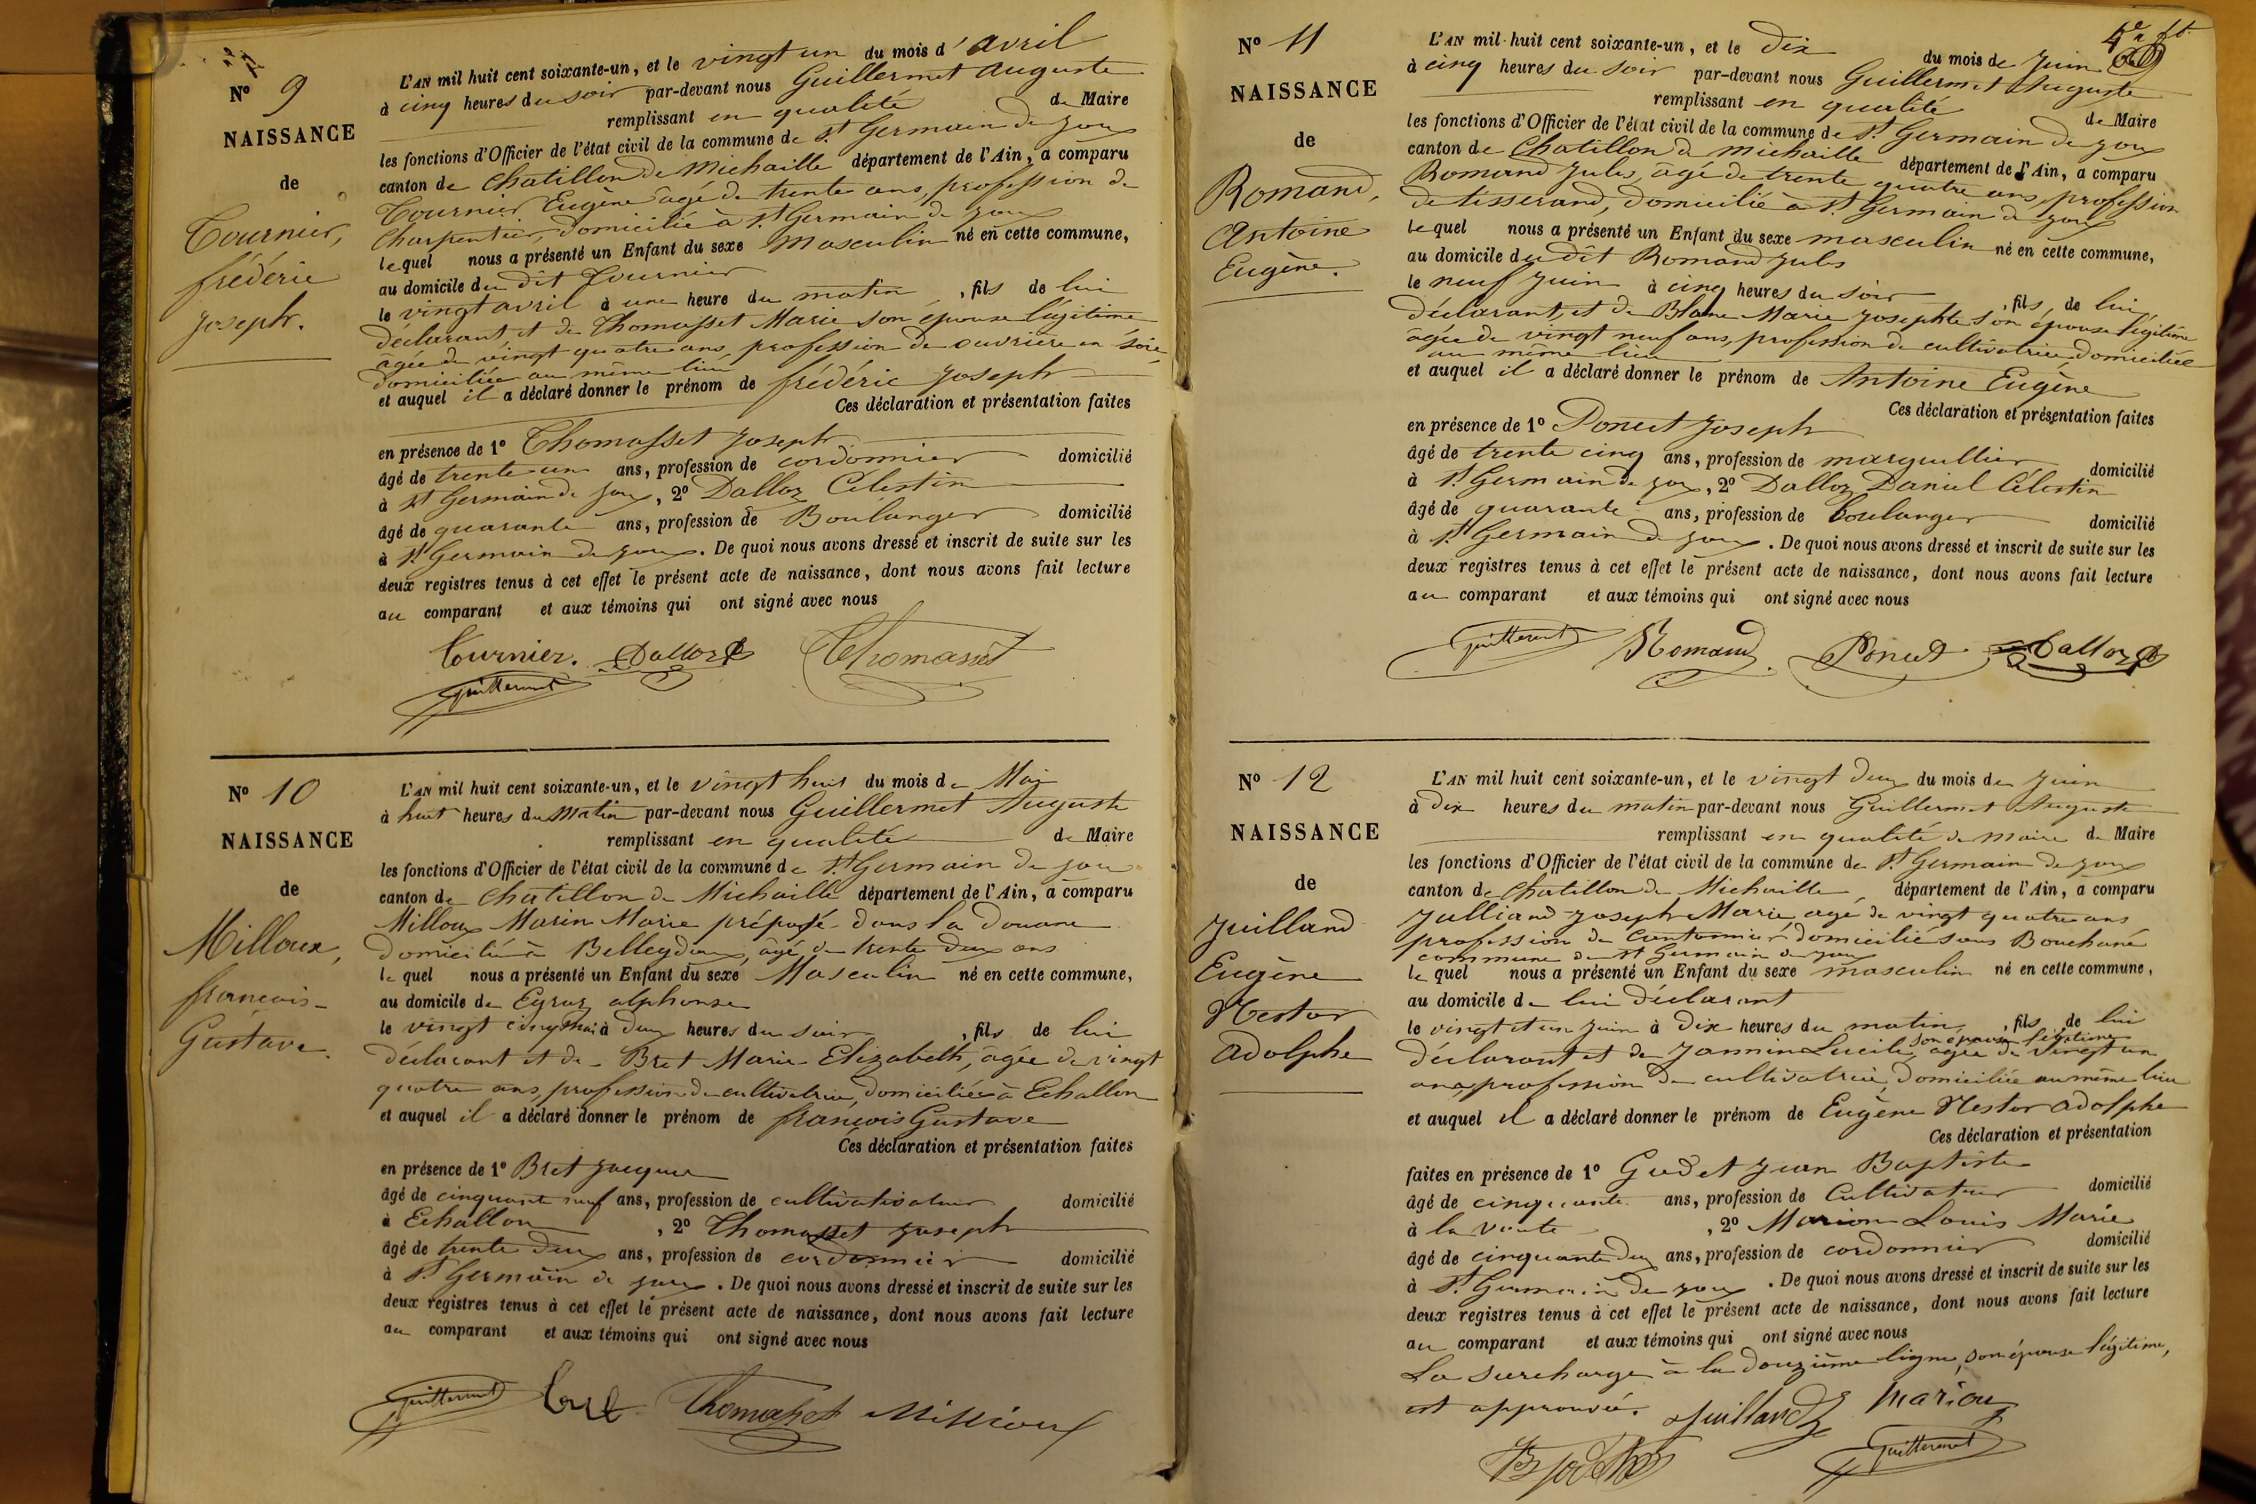 N° 9
NAISSANCE
de
Tournier,
frédéric
Joseph.
L'AN mil huit cent soixante-un, et le vingt un du mois d'avril
à cinq heures du soir par-devant nous Guillermet Auguste
remplissant en qualité de Maire
les fonctions d'Officier de l'état civil de la commune de St Germain de Joux
canton de Chatillon de Michaille département de l'Ain, a comparu
Tournier Eugène âgé de trente ans, profession de
charpentier, domicilié à St Germain de Joux
lequel nous a présenté un Enfant du sexe masculin né en cette commune,
au domicile du dit Tournier
le vingt avril à une heure du matin, fils de lui
déclarant et de Thomasset Marie son épouse légitime
âgée de vingt quatre ans, profession de ouvrière en soie
domiciliée au même lieu
et auquel il a déclaré donner le prénom de frédéric Joseph
Ces déclaration et présentation faites
en présence de 1° Thomasset Joseph
âgé de trente un ans, profession de cordonnier domicilié
à St Germain de Joux, 2° Dalloz Célestin
âgé de quarante ans, profession de Boulanger domicilié
à St Germain de Joux. De quoi nous avons dressé et inscrit de suite sur les
deux registres tenus à cet effet le présent acte de naissance, dont nous avons fait lecture
au comparant et aux témoins qui ont signé avec nous
Tournier. Dalloz Thomasset
Guillermet
N° 10
NAISSANCE
de
Milloux,
francois-
Gustave.
L'AN mil huit cent soixante-un, et le vingt huit du mois de Mai
à huit heures du Matin par-devant nous Guillermet Auguste
remplissant en qualité de Maire
les fonctions d'Officier de l'état civil de la commune de St Germain de Joux
canton de Chatillon de Michaille département de l'Ain, a comparu
Milloux Marin Marie préposé dans la Douane
domicilié à Belleydoux, âgé de trente deux ans
lequel nous a présenté un Enfant du sexe Masculin né en cette commune,
au domicile de Eyraz alphonse
le vingt cinq Mai à deux heures du soir, fils de lui
déclarant et de Bret Marie Elizabeth, agée de vingt
quatre ans, profession de cultivatrice, domiciliée à Echallon
et auquel il a déclaré donner le prénom de françois Gustave
Ces déclaration et présentation faites
en présence de 1° Bret Jacques
âgé de cinquante neuf ans, profession de cultivatioateur domicilié
à Echallon, 2° Thomasset Joseph
âgé de trente deux ans, profession de cordonnier domicilié
à St Germain de Joux. De quoi nous avons dressé et inscrit de suite sur les
deux registres tenus à cet effet le présent acte de naissance, dont nous avons fait lecture
au comparant et aux témoins qui ont signé avec nous
Guillermet Thomasset Millioux
N° 11
NAISSANCE
de
Romand,
Antoine
Eugène.
L'AN mil huit cent soixante-un, et le Dix du mois de Juin
à cinq heures du soir par-devant nous Guillermet Auguste
remplissant en qualité de Maire
les fonctions d'Officier de l'état civil de la commune de St Germain de Joux
canton de Chatillon de Michaille département de l'Ain, a comparu
Romand Jules, âgé de trente quatre ans, profession
de tisserand, domicilié à St Germain de Joux
lequel nous a présenté un Enfant du sexe masculin né en cette commune,
au domicile du dit Romand Jules
le neuf Juin à cinq heures du soir, fils de lui
déclarant, et de Blanc Marie Josephte son épouse légitime
âgée de vingt neuf ans, profession de cultivatrice domiciliée
au même lieu
et auquel il a déclaré donner le prénom de Antoine Eugène
Ces déclaration et présentation faites
en présence de 1° Poncet Joseph
âgé de trente cinq ans, profession de marguillier domicilié
à St Germain de Joux, 2° Dalloz Daniel Célestin
âgé de quarante ans, profession de boulanger domicilié
à St Germain de Joux. De quoi nous avons dressé et inscrit de suite sur les
deux registres tenus à cet effet le présent acte de naissance, dont nous avons fait lecture
au comparant et aux témoins qui ont signé avec nous
Guillermet Romand Poncet Dalloz
N° 12
NAISSANCE
de
Juilland
Eugène
Nestor
adolphe
L'AN mil huit cent soixante-un, et le vingt deux du mois de Juin
à dix heures du matin par-devant nous Guillermet Auguste
remplissant en qualité de maire de Maire
les fonctions d'Officier de l'état civil de la commune de St Germain de Joux
canton de Chatillon de Michaille département de l'Ain, a comparu
Julliand Joseph Marie, agé de vingt quatre ans
profession de cantonnier domicilié sous Bouchané
commune de St Germain de Joux
lequel nous a présenté un Enfant du sexe masculin né en cette commune,
au domicile de lui déclarant
le vingt et un Juin à dix heures du matin, fils de lui
son épouse légitime
déclarant et de Jannin Lucile, agée de vingt un
ans, profession de cultivatrice, domiciliée au même lieu
et auquel il a déclaré donner le prénom de Eugène Nestor adolphe
Ces déclaration et présentation
faites en présence de 1° Godet Jean Baptiste
âgé de cinquante ans, profession de Cultivateur domicilié
à la Voute, 2° Marion Louis Marie
âgé de cinquante deux ans, profession de cordonnier domicilié
à St Germain de Joux. De quoi nous avons dressé et inscrit de suite sur les
deux registres tenus à cet effet le présent acte de naissance, dont nous avons fait lecture
au comparant et aux témoins qui ont signé avec nous
La surcharge à la douzième ligne, son épouse légitime,
est approuvée. Juilland Marion
Guillermet